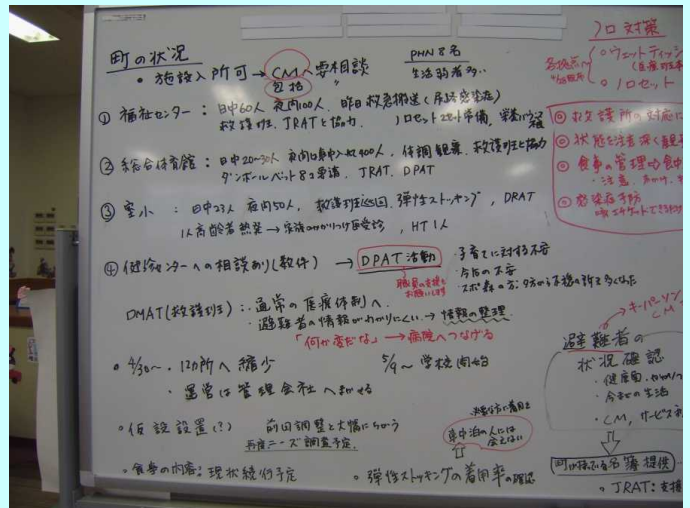 町の状況
・施設入所可→CMへ要相談
包括
PHN 8名
生活弱者多い
① 福祉センター：日中60人 夜間100人、昨日救急搬送（尿路感染症）
救護班、JRATと協力、ノロセット2セット準備、
② 総合体育館：日中20〜30人 夜間 400人、体調観察、救護班と協力
ダンボールベット 要請、JRAT、DPAT
③ 小：日中23人 夜間50人、救護班巡回、弾性ストッキング、DRAT
1人高齢者熱発→家族のかかりつけ医受診、HT1人
④ 健診センターへの相談あり（数件）→DPAT活動
職員の支援も
お願いします
・子育てに対する不安
・今後の不安
DMAT（救護班）：・通常の医療体制へ
・避難者の情報がわかりにくい→情報の整理
「何か変だな」→病院へつなげる
・4/30〜、12カ所へ縮少
5/9〜学校開始
・運営は管理会社へまかせる
・仮設設置（?） 前回調整と大幅にちがう
再度ニーズ調査予定
車中泊の人には
会えない
・食事の内容：現状続行予定
・弾性ストッキングの着用率の確認
ノロ対策
各拠点へ
○ウェットティッシ
○ノロセット
◎救護所の対応に
◎状態を注意深く観
◎食事の管理
・注意、声かけ、
◎感染症予防
キーパーソン
CM
避難者の
状況確認
・健康面、
・今までの生活
・CM、サービス
名簿提供
・JRAT：支援